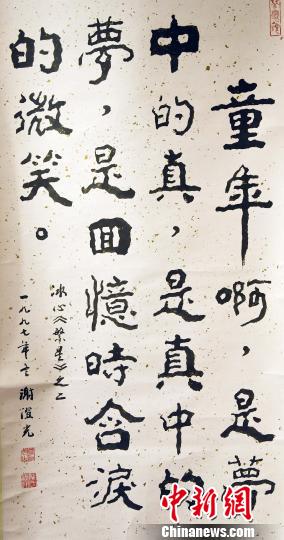 童年啊，是夢
中的真，是真中的
夢，是回憶時含淚
的微笑。
冰心《繁星》之二
一九九七年冬 謝澄光
中新網
Chinanews.com